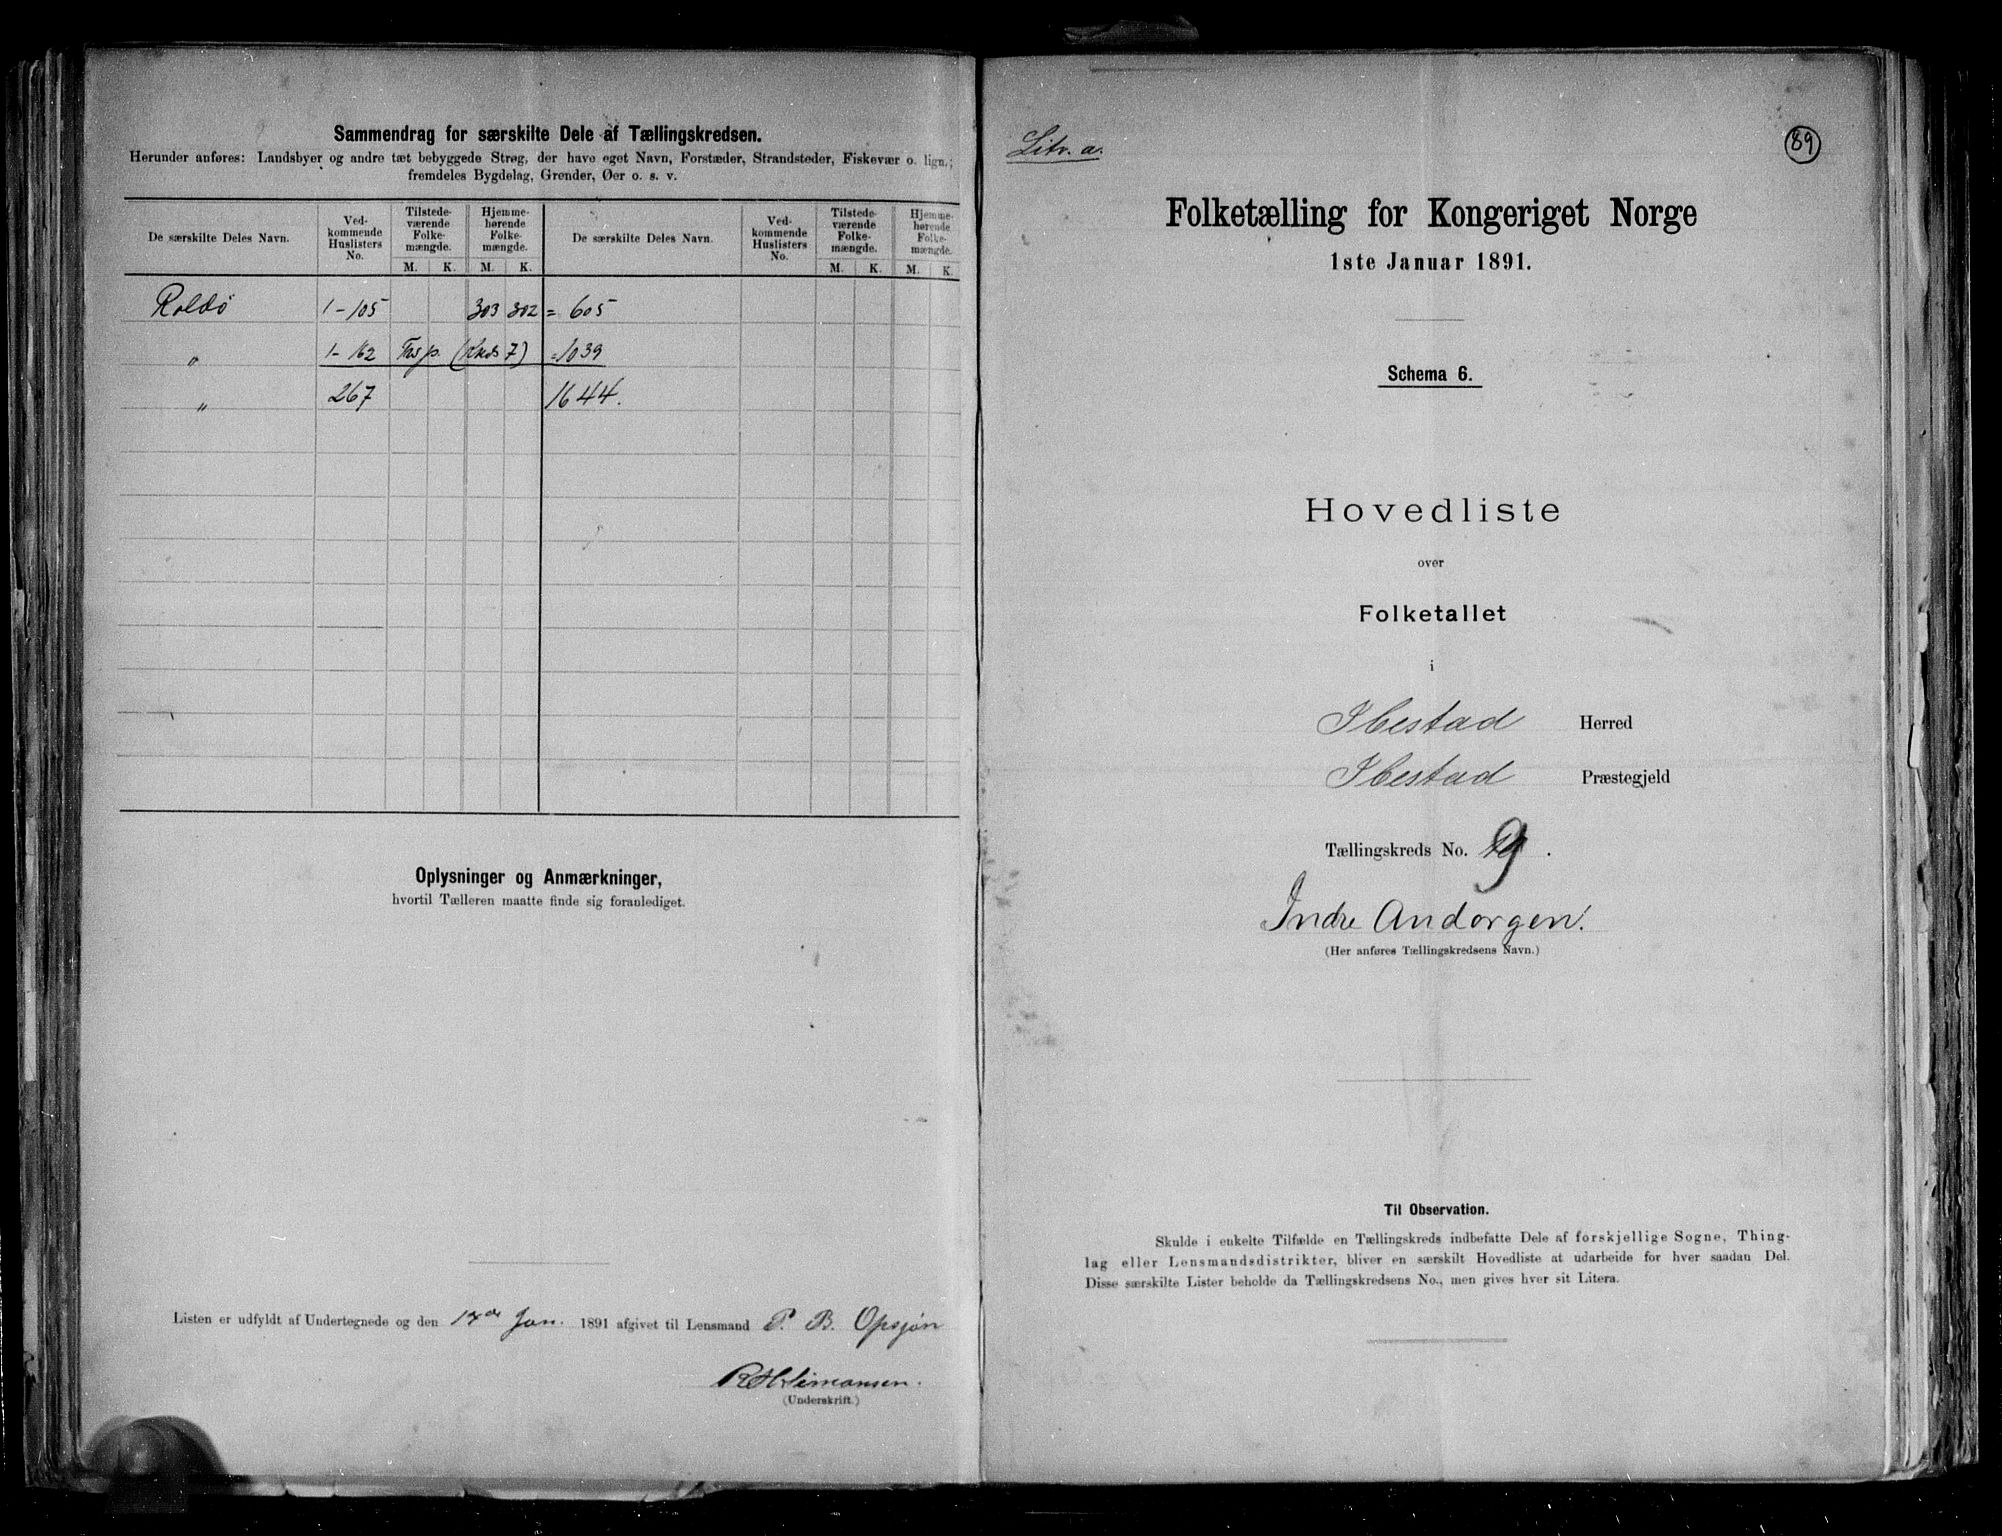 Sammendrag for særskilte Dele af Tællingskredsen.
Herunder anføres: Landsbyer og andre tæt bebyggede Strøg, der have eget Navn, Forstæder, Strandsteder, Fiskevær o. lign.;
fremdeles Bygdelag, Grender, Øer o. s. v.
De særskilte Deles Navn. Ved-kommende Huslisters No. Tilstede-værende Folke-mængde. Hjemme-hørende Folke-mængde. De særskilte Deles Navn. Ved-kommende Huslisters No. Tilstede-værende Folke-mængde. Hjemme-hørende Folke-mængde.
M. K. M. K. M. K. M. K.
Roldö 1-105 303 302 = 605
" 1-162 (Kreds 7) = 1039
" 267 1644.
Oplysninger og Anmærkninger,
hvortil Tælleren maatte finde sig foranlediget.
Listen er udfyldt af Undertegnede og den Jan. 1891 afgivet til Lensmand P. B. Opsjøn
(Underskrift.)
Litr. a.
89
Folketælling for Kongeriget Norge
1ste Januar 1891.
Schema 6.
Hovedliste
over
Folketallet
i
Ibestad Herred
Ibestad Præstegjeld
Tællingskreds No. 9.
Indre Andorgen.
(Her anføres Tællingskredsens Navn.)
Til Observation.
Skulde i enkelte Tilfælde en Tællingskreds indbefatte Dele af forskjellige Sogne, Thing-
lag eller Lensmandsdistrikter, bliver en særskilt Hovedliste at udarbeide for hver saadan Del.
Disse særskilte Lister beholde da Tællingskredsens No., men gives hver sit Litera.